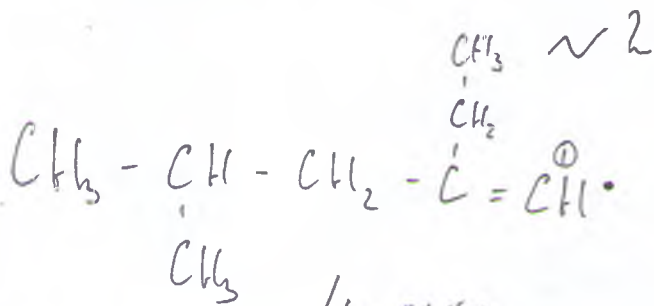 CH₃ ~ 2
CH₂
①
CH₃ - CH - CH₂ - C = CH •
CH₃